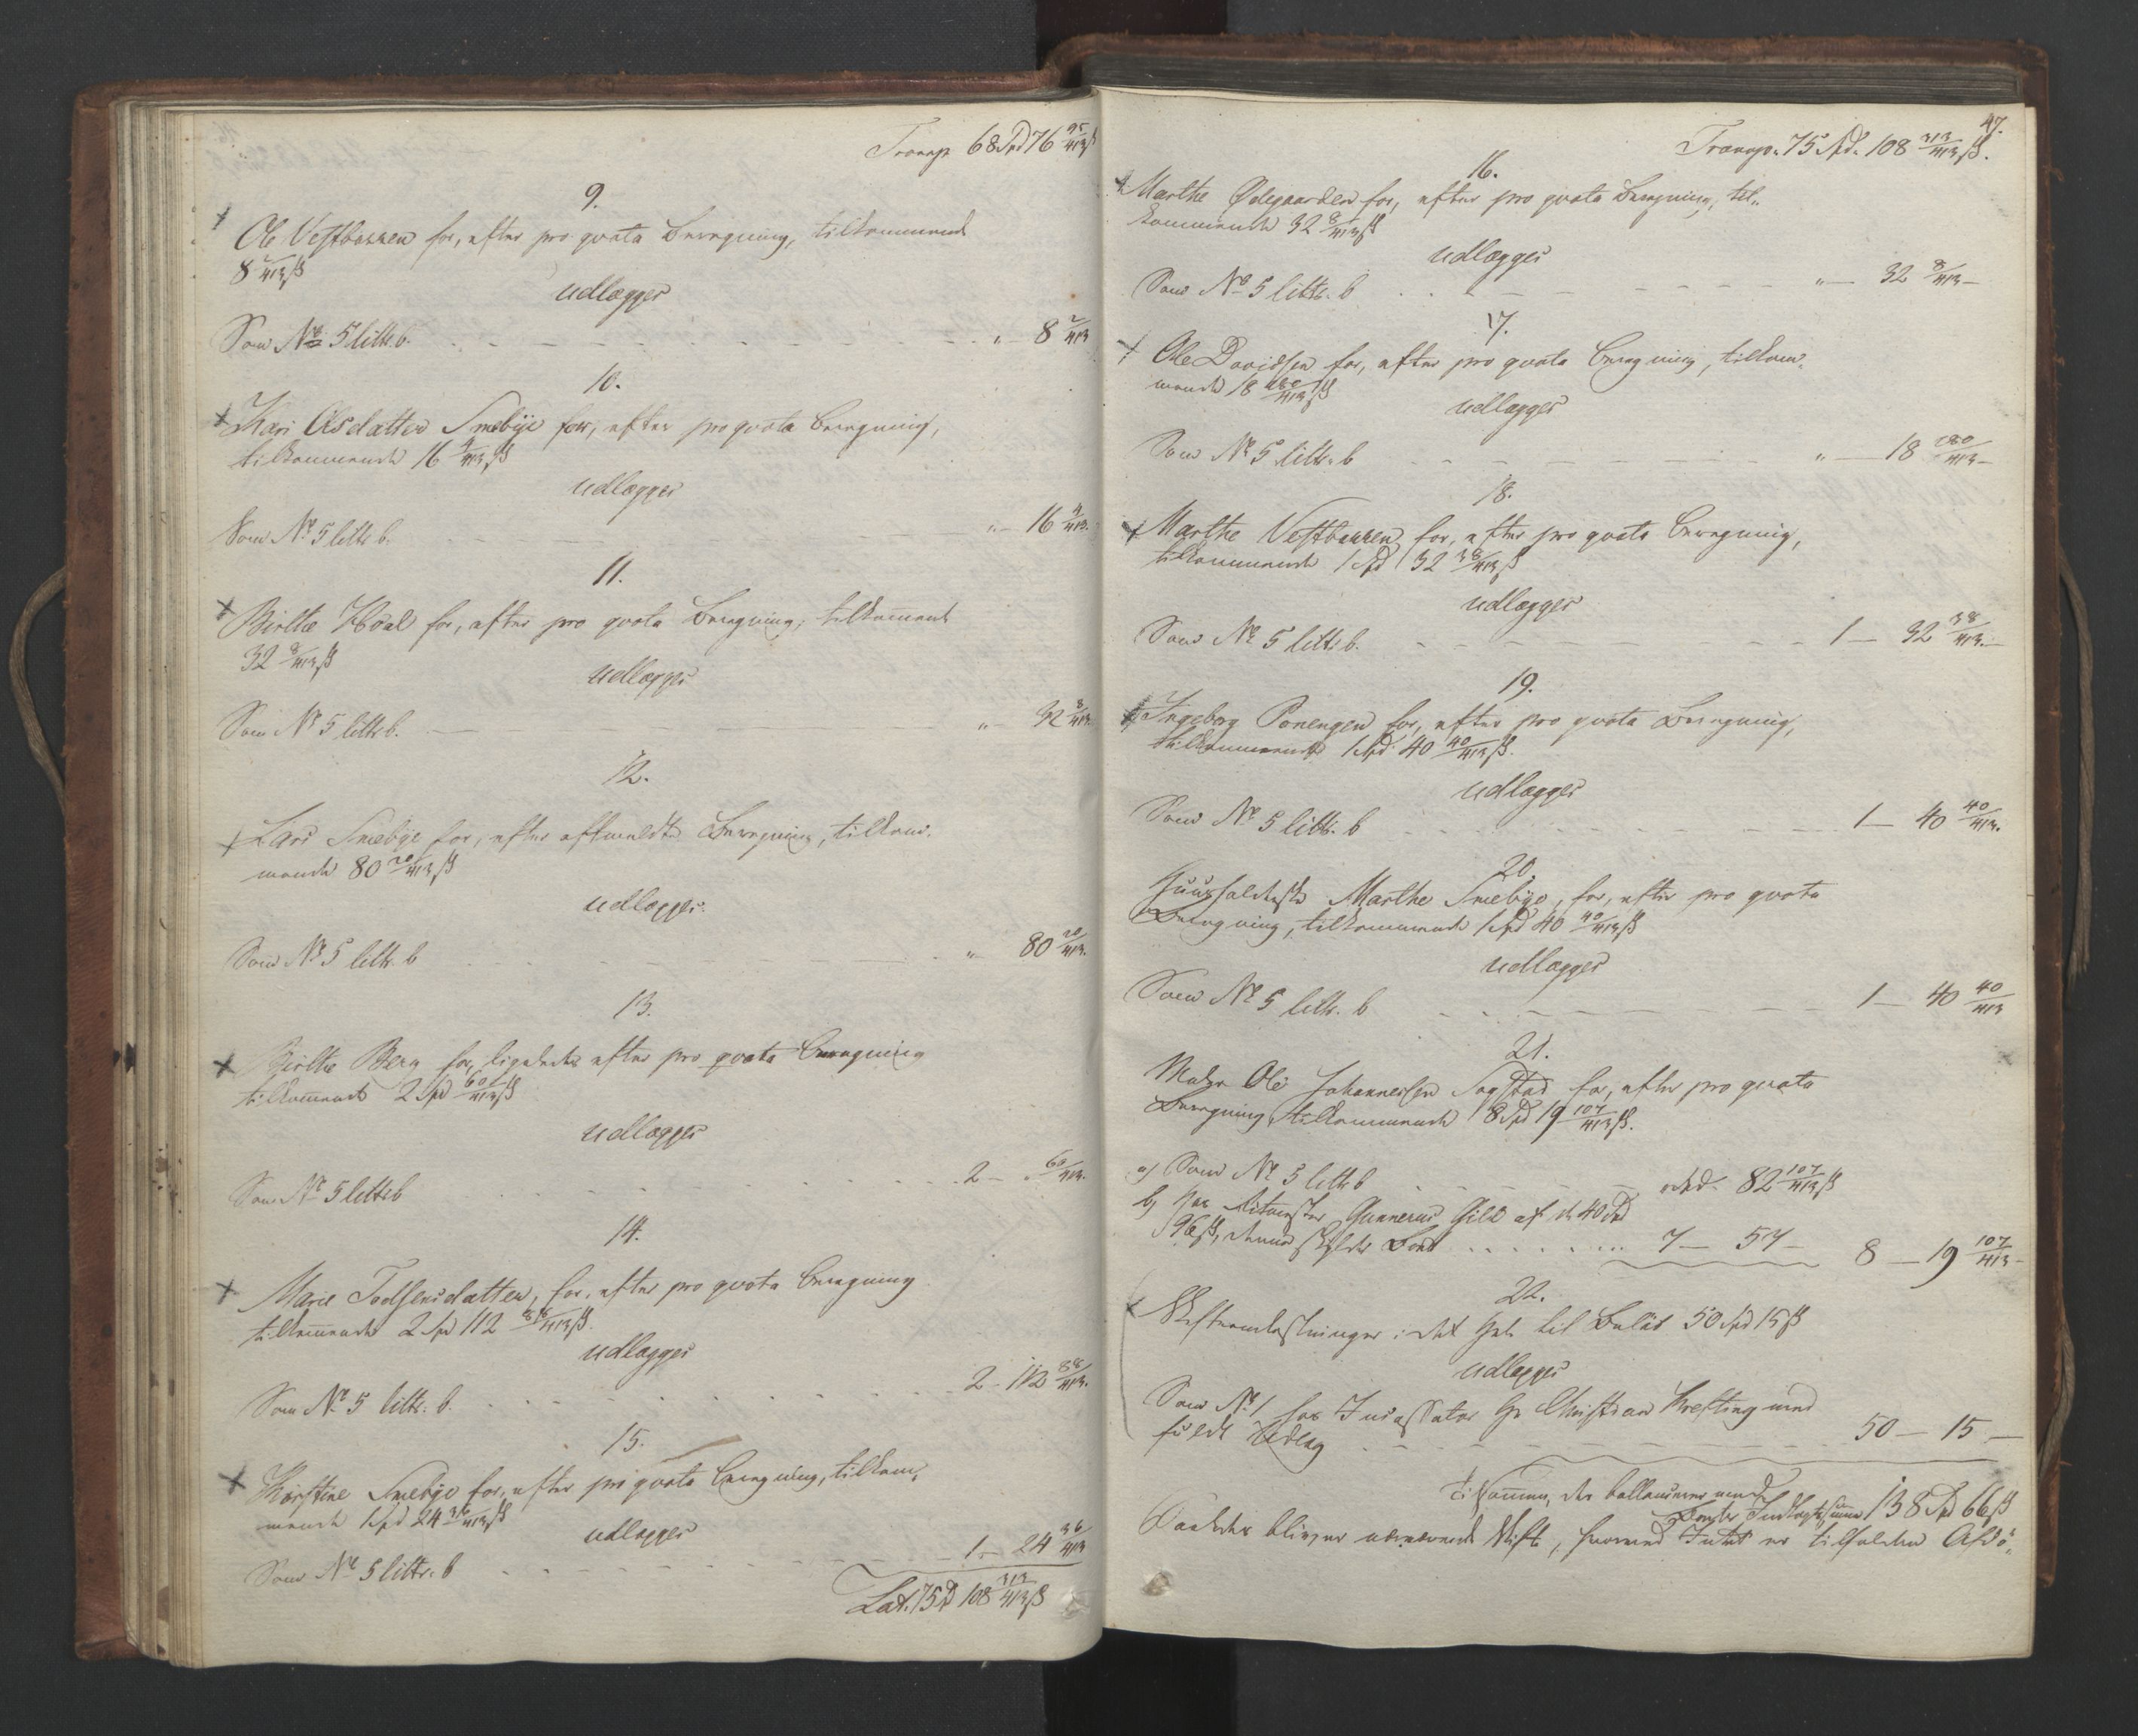 Transp. 68 Spd 76 95/413 ß
9.
Ole Vestbakken for, efter pro qvota Beregning, tilkommende
8 2/413 ß
udlægges
Som No 5 littr. b. „ 8 2/413
10.
Kari Olsdatter Smebye for, efter pro qvota Beregning,
tilkommende 16 4/413 ß
udlægges
Som No 5 littr b. „ 16 4/413.
11.
Birthe Hoel for, efter pro qvota Beregning, tilkommende
32 8/413 ß
udlægges
Som No 5 littr b. „ 32 8/413.
12.
Lars Smebye for, efter Beregning, tilkom-
mende 80 20/413 ß
udlægges
Som No 5 littr. b „ 80 20/413.
13.
Birthe Berg for, ligeledes efter pro qvota Beregning
tilkommende 2 Spd 60/413 ß
udlægges
Som No 5 littr b 2 - „ 60/413.
14.
Marie Todsensdatter, for, efter pro qvota Beregning
tilkommende 2 Spd 112 88/413 ß.
udlægges
Som No 5 littr. b. 2 - 112 88/413.
15.
Kirstine Smebye for, efter pro qvota Beregning, tilkom-
mende 1 Spd 24 36/413 ß
udlægges
Som No 5 littr. b 1 - 24 36/413
Lat. 75 Spd 108 313/413 ß
47.
Transp. 75 Spd. 108 313/413 ß.
16.
Marthe Ødegaarden for, efter pro qvota Beregning, til-
kommende 32 8/413 ß
udlægges
Som No 5 littr. b „ - 32 8/413 -
17.
Ole Davidsen for, efter pro qvota Beregning, tilkom-
mende 18 280/413 ß
udlægges
Som No 5 littr. b „ - 18 280/413 -
18.
Marthe Vestbakken for, efter pro qvota Beregning,
tilkommende 1 Spd 32 38/413 ß
udlægges
Som No 5 littr b. 1 - 32 38/413 -
19.
Ingeborg Ponengen for, efter pro qvota Beregning,
tilkommende 1 Spd. 40 40/413 ß.
udlægges
Som No 5 littr. b 1 - 40 40/413.
20.
Marthe Smebye, for, efter pro qvota
Beregning, tilkommende 1 Spd 40 40/413 ß
udlægges
Som No 5 littr. b 1 - 40 40/413
21.
Ole Johannesen Sagstad for, efter pro qvota
Beregning, tilkommende 8 Spd 19 107/413 ß.
a) Som No 5 littr b 82 107/413 ß
b, Hos Gunnerus Gill af de 40 Spd
96 ß, 7 - 57 - 8 - 19 107/413 -
22.
Skifteomkostninger i det Hele til Beløb 50 Spd 15 ß
udlægges
Som No 1 hos Incassator Hr Christian Krefting med
fuldt Udlæg 50 - 15 -
Tilsammen, der ballancerer med
Boets Indtægtssumma 138 Spd 66 ß
Saaledes bliver nærværende Skifte, hvorved Intet er tilfalden Afdø-